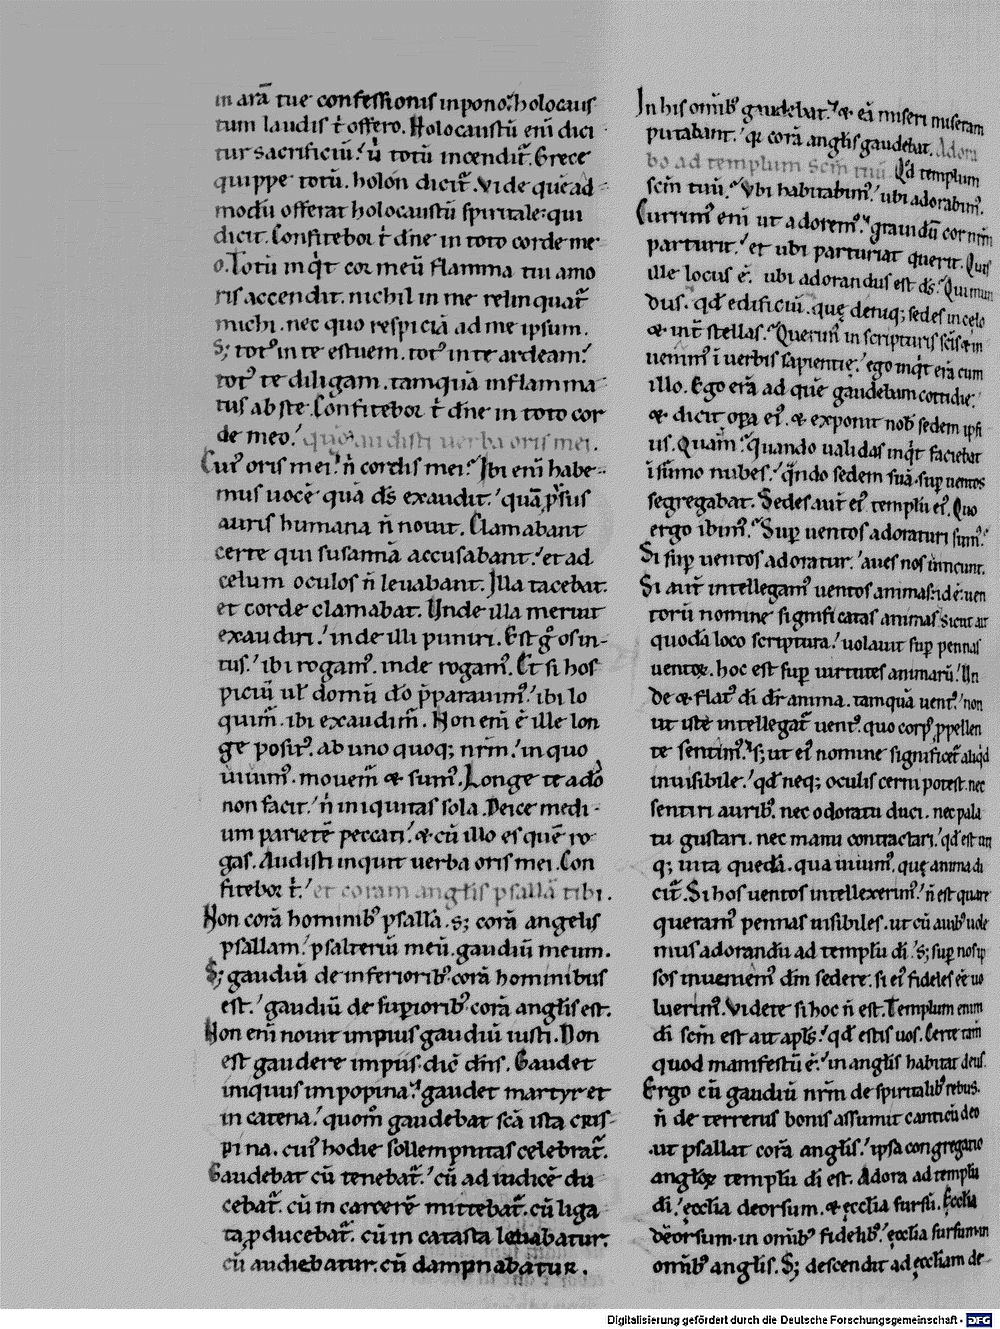 in arā tue confessionis inpono. holocaus
tum laudis t̄ offero. Holocaustū eni dici
tur sacrificiū. ủ totū incendit̄. Grece
quippe totū. holon dicit̄. Vide quēad-
modū offerat holocaustū spiritale: qui
dicit. Confitebor t̄ dn̄e in toto corde me
o. Totū inqͥt cor meū flamma tui amo
ris accendit. nichil in me relinquat̄
michi. nec quo respiciā ad me ipsum.
S; totꝰ in te estuem. totꝰ in te ardeam.
totꝰ te diligam. tamquā inflamma-
tus abs te. Confitebor t̄ dn̄e in toto cor
de meo. quo audisti uerba oris mei.
Cuiꝰ oris mei? n̄ cordis mei? Ibi eni habe-
mus uocē quā ds̄ exaudit. quā ꝓrsus
auris humana n̄ nouit. Clamabant
certe qui susannā accusabant. et ad
celum oculos n̄ leuabant. Illa tacebat.
et corde clamabat. Unde illa meruit
exaudiri. inde illi puniri. Est gͦ os in-
tus. ibi rogamꝰ. inde rogamꝰ. Et si hos
piciū uł domū do p̄parauimꝰ. ibi lo
quim̄. ibi exaudim̄. Non eni ē ille lon
ge positꝰ. ab uno quoq; nr̄m. in quo
uiuimꝰ. mouem̄ & sumꝰ. Longe te a do
non facit. n̄ iniquitas sola. Deice medi-
um parietē peccati. & cū illo es quē ro
gas. Audisti inquit uerba oris mei. Con
fitebor t̄. et coram angłis psallā tibi.
Non corā hominibꝰ psallā. s; corā angelis
psallam. psalteriū meū. gaudiū meum.
S; gaudiū de inferioribꝰ corā hominibus
est. gaudiū de supioribꝰ corā angłis est.
Non eni nouit impius gaudiū iusti. Non
est gaudere impiis. dic̄ dn̄s. Gaudet
iniquus in popina. gaudet martyr et
in catena. quom̊ gaudebat sc̄a ista cris-
pina. cuiꝰ hodie sollempnitas celebrat̄.
Gaudebat cū tenebat̄. cū ad iudicē du
cebat̄. cū in carcerē mittebat̄. cū liga
ta ꝓducebat̄. cū in catasta leuabatur.
cū audiebatur. cū dampnabatur.
In his om̄ibꝰ gaudebat. & eā miseri miseram
putabant. qͥ corā angłis gaudebat. Adora
bo ad templum sc̄m tuū. Qd̄ templum
sc̄m tuū? Vbi habitabimꝰ. ubi adorabimꝰ.
Currimꝰ eni ut adoremꝰ. grauidū cor nr̄m
parturit. et ubi parturiat querit. Quis
ille locus ē. ubi adorandus est ds̄. Qui mun
dus. qd̄ edificiū. quę deniq; sedes in celo
& int̄ stellas. Querimꝰ in scripturis sc̄is & in
uenimꝰ ī uerbis sapientię. ego inqͥt erā cum
illo. Ego erā ad quē gaudebam cottidie.
& dicit oꝑa eiꝰ. & exponit nob̄ sedem ipsi
us. Quam? quando ualidas inqͥt faciebat
ī sūmo nubes. qͣndo sedem suā suꝑ uentos
segregabat. Sedes aut̄ eiꝰ templū eiꝰ. Quo
ergo ibimꝰ. Suꝑ uentos adoraturi sumꝰ.
Si suꝑ uentos adoratur. aues nos uincunt.
Si aut̄ intellegamꝰ uentos animas: id ē uen
torū nomine significatas animas sicut ait
quodā loco scriptura. uolauit suꝑ pennas
uentoꝝ. hoc est suꝑ uirtutes animarū. Un
de & flatꝰ di dr̄ anima. tamquā uentꝰ. non
ut istē intellegat̄ uentꝰ. quo corpꝰ ꝓpellen
te sentimꝰ. s; ut eiꝰ nomine significet̄ aliqͥd
inuisibile. qd̄ neq; oculis cerni potest. nec
sentiri auribꝰ. nec odoratu duci. nec pala
tu gustari. nec manu contractari. qd̄ est un
q; uita quedā. qua uiuimꝰ. quę anima di
cit̄. Si hos uentos intellexerimꝰ. n̄ est quare
queramꝰ pennas uisibiles. ut cū auibꝰ uole
mus adorandū ad templū di. S; suꝑ nos ip
sos inuenimꝰ dm̄ sedere. si eiꝰ fideles eē uo
luerimꝰ. Videte si hoc n̄ est. Templum enim
di sc̄m est ait apłs. qd̄ estis uos. Certe tam̄
quod manifestū ē. in angłis habitat deus.
Ergo cū gaudiū nr̄m de spiritalibꝰ rebus.
n̄ de terrenis bonis assumit canticū deo
ut psallat corā angłis. ipsa congregatio
angłoꝝ templū di est. Adora ad templū
di. ęccłia deorsum. & ęccłia sursū. Ęccłia
deorsum. in om̄ibꝰ fidelibꝰ. ęccłia sursum. in
om̄ibꝰ angłis. S; descendit ad ęccłiam de-
Digitalisierung gefördert durch die Deutsche Forschungsgemeinschaft - DFG